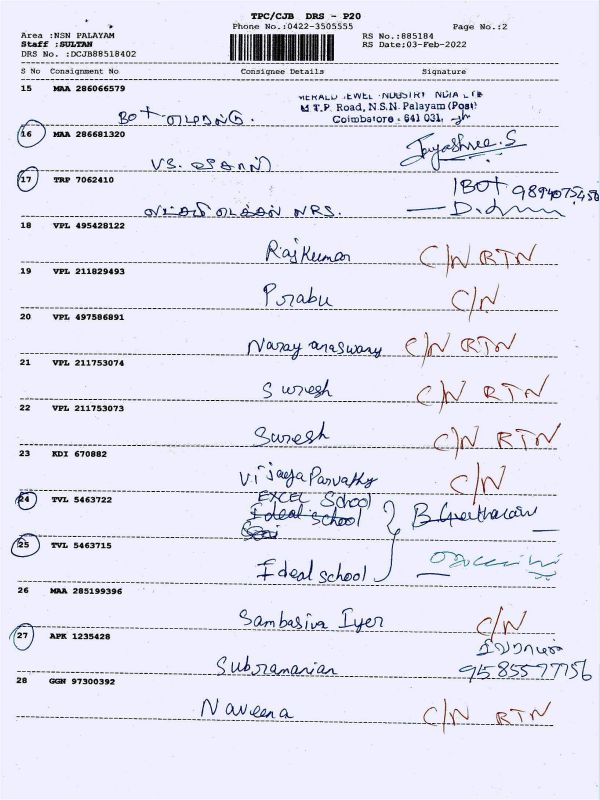 TPC/CJB DRS - P20
Phone No.:0422-3505555 Page No.:2
Area :NSN PALAYAM RS No.:885184
Staff :SULTAN RS Date;03-Feb-2022
DRS No. :DCJB88518402
S No Consignment No Consignee Details Signature
15 MAA 286066579
HERALD JEWEL INDUSTRY INDIA LTD
M.T.P. Road, N.S.N. Palayam (Post)
BOT Coimbatore - 641 031.
16 MAA 286681320
Jayashree.S
VS.
17 TRP 7062410
1BOT 9894075458
NRS.
18 VPL 495428122
Rajkumar C/N RTN
19 VPL 211829493
Prabu C/N
20 VPL 497586891
Narayanaswamy C/N RTN
21 VPL 211753074
Suresh C/N RTN
22 VPL 211753073
Suresh C/N RTN
23 KDI 670882
Vijaya Parvathy C/N
24 TVL 5463722
EXCEL School
Ideal School
25 TVL 5463715
Ideal school
26 MAA 285199396
Sambasiva Iyer C/N
27 APK 1235428
Subramanian 9585577756
28 GGN 97300392
Naveena C/N RTN